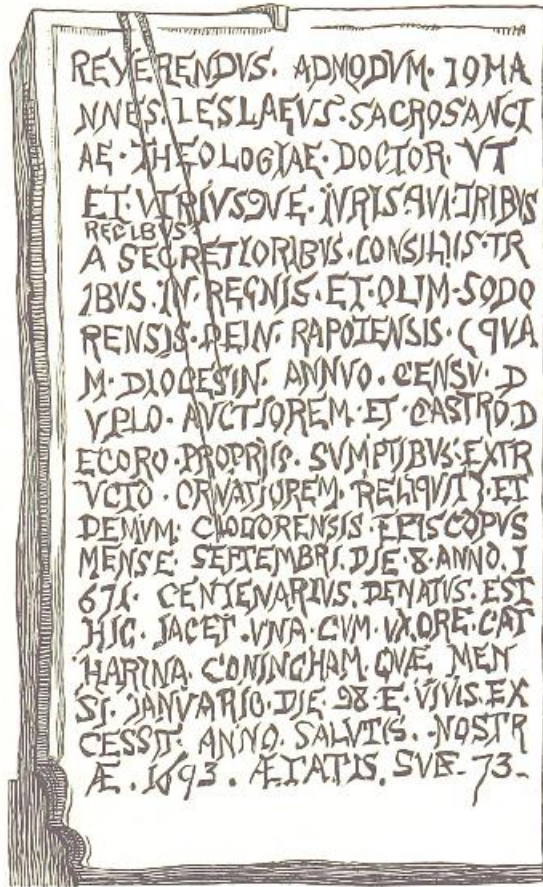 REVERENDVS. ADMODVM. IOHA
NNES. LESLAEVS. SACROSANCT
AE. THEOLOGIAE. DOCTOR. VT
ET. VTRIVSQVE. IVRIS AVI. TRIBVS
REGIBVS
A SECRETIORIBVS. CONSILIIS. TR
IBVS. IN. REGNIS. ET. OLIM. SODO
RENSIS. DEIN. RAPOTENSIS. (QVA
M. DIOCESIN. ANNVO. CENSV. D
VPLO. AVCTIOREM. ET. CASTRO. D
ECORO. PROPRIIS. SVMPTIBVS. EXTR
VCTO. ORNATIOREM. RELIQVIT) ET
DEMVM. CLOGORENSIS. EPISCOPVS
MENSE. SEPTEMBRI. DIE. 8. ANNO. I
671. CENTENARIVS. DENATVS. EST
HIC. JACET. VNA. CVM. VXORE. CAT
HARINA. CONINGHAM. QVÆ MEN
SI. IANVARIO. DIE. 28. E. VIVIS. EX
CESSIT. ANNO. SALVTIS. NOSTR
Æ. 1693. ÆTATIS. SVÆ. 73.